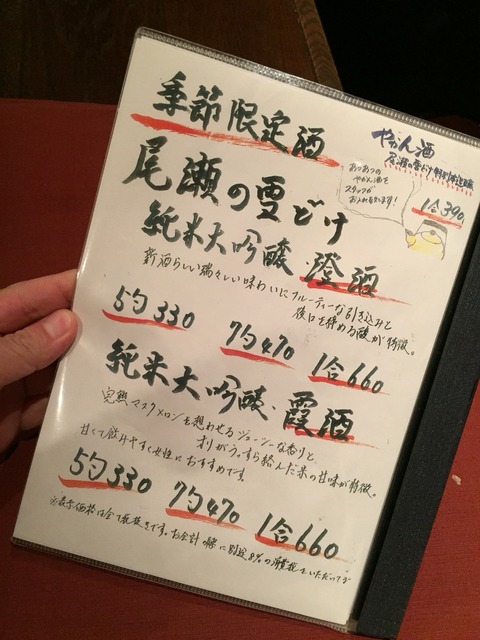 季節限定酒
尾瀬の雪どけ
純米大吟醸・澄酒
新酒らしい瑞々しい味わいにフルーティーな引き込みと
後口を締める酸が特徴。
5勺330 7勺470 1合660
純米大吟醸・霞酒
完熟マスクメロンを想わせるジューシーな香りと
オリがうっすら絡んだ果の甘味が特徴。
甘くて飲みやすく女性におすすめです。
5勺330 7勺470 1合660
※表示価格は全て税抜きです。お会計の際に別途8%の消費税をいただいてお
やかん酒
尾瀬の雪どけ特別純造
1合390
あつあつの
やかん酒を
スタッフが
お入れします!